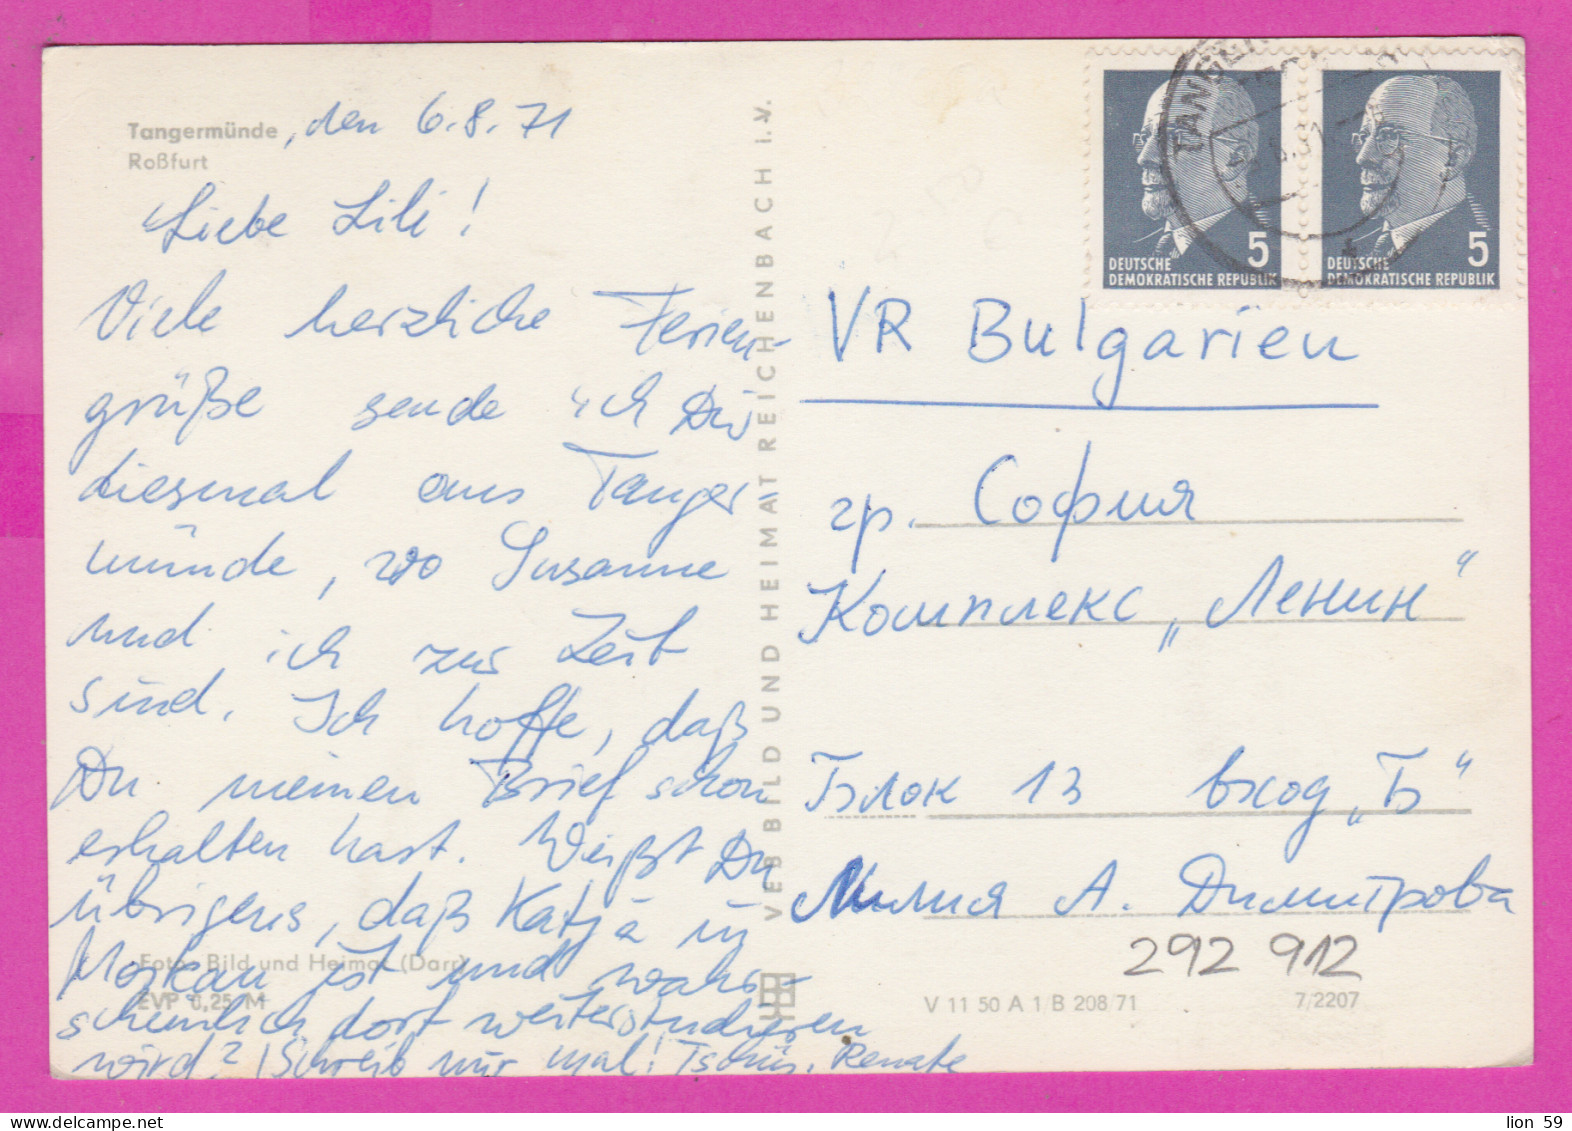 Tangermünde, den 6.8.71
Roßfurt
Liebe Lili!
Viele herzliche Ferien-
grüße sende ich Dir
diesmal aus Tanger-
münde, wo Susanne
und ich zur Zeit
sind. Ich hoffe, daß
Du meinen Brief schon
erhalten hast. Weißt Du
übrigens, daß Katja in
Moskau ist und wahr-
scheinlich dort weiterstudieren
wird? Schreib mir mal! Tschüs, Renate
Foto: Bild und Heimat (Darr)
EVP 0,25 M
VEB BILD UND HEIMAT REICHENBACH i. V.
TANGER
5
DEUTSCHE
DEMOKRATISCHE REPUBLIK
5
DEUTSCHE
DEMOKRATISCHE REPUBLIK
VR Bulgarien
гр. София
Комплекс „Ленин“
Блок 13 вход „Б“
Лилия А. Димитрова
292 912
V 11 50 A 1 B 208 71 7/2207
lion 59